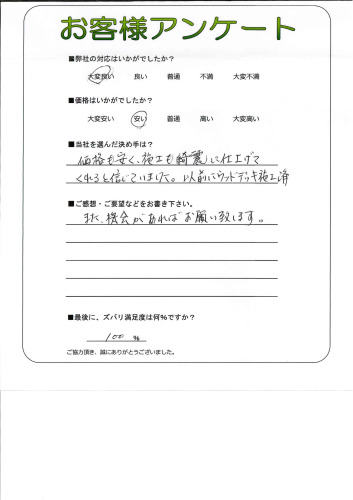 お客様アンケート
■弊社の対応はいかがでしたか?
大変良い 良い 普通 不満 大変不満
■価格はいかがでしたか?
大変安い 安い 普通 高い 大変高い
■当社を選んだ決め手は?
価格も安く、施工も綺麗に仕上げて
くれると信じていました。以前にウッドデッキ施工済
■ご感想・ご要望などをお書き下さい。
また、機会があればお願い致します。
■最後に、ズバリ満足度は何%ですか?
100 %
ご協力頂き、誠にありがとうございました。